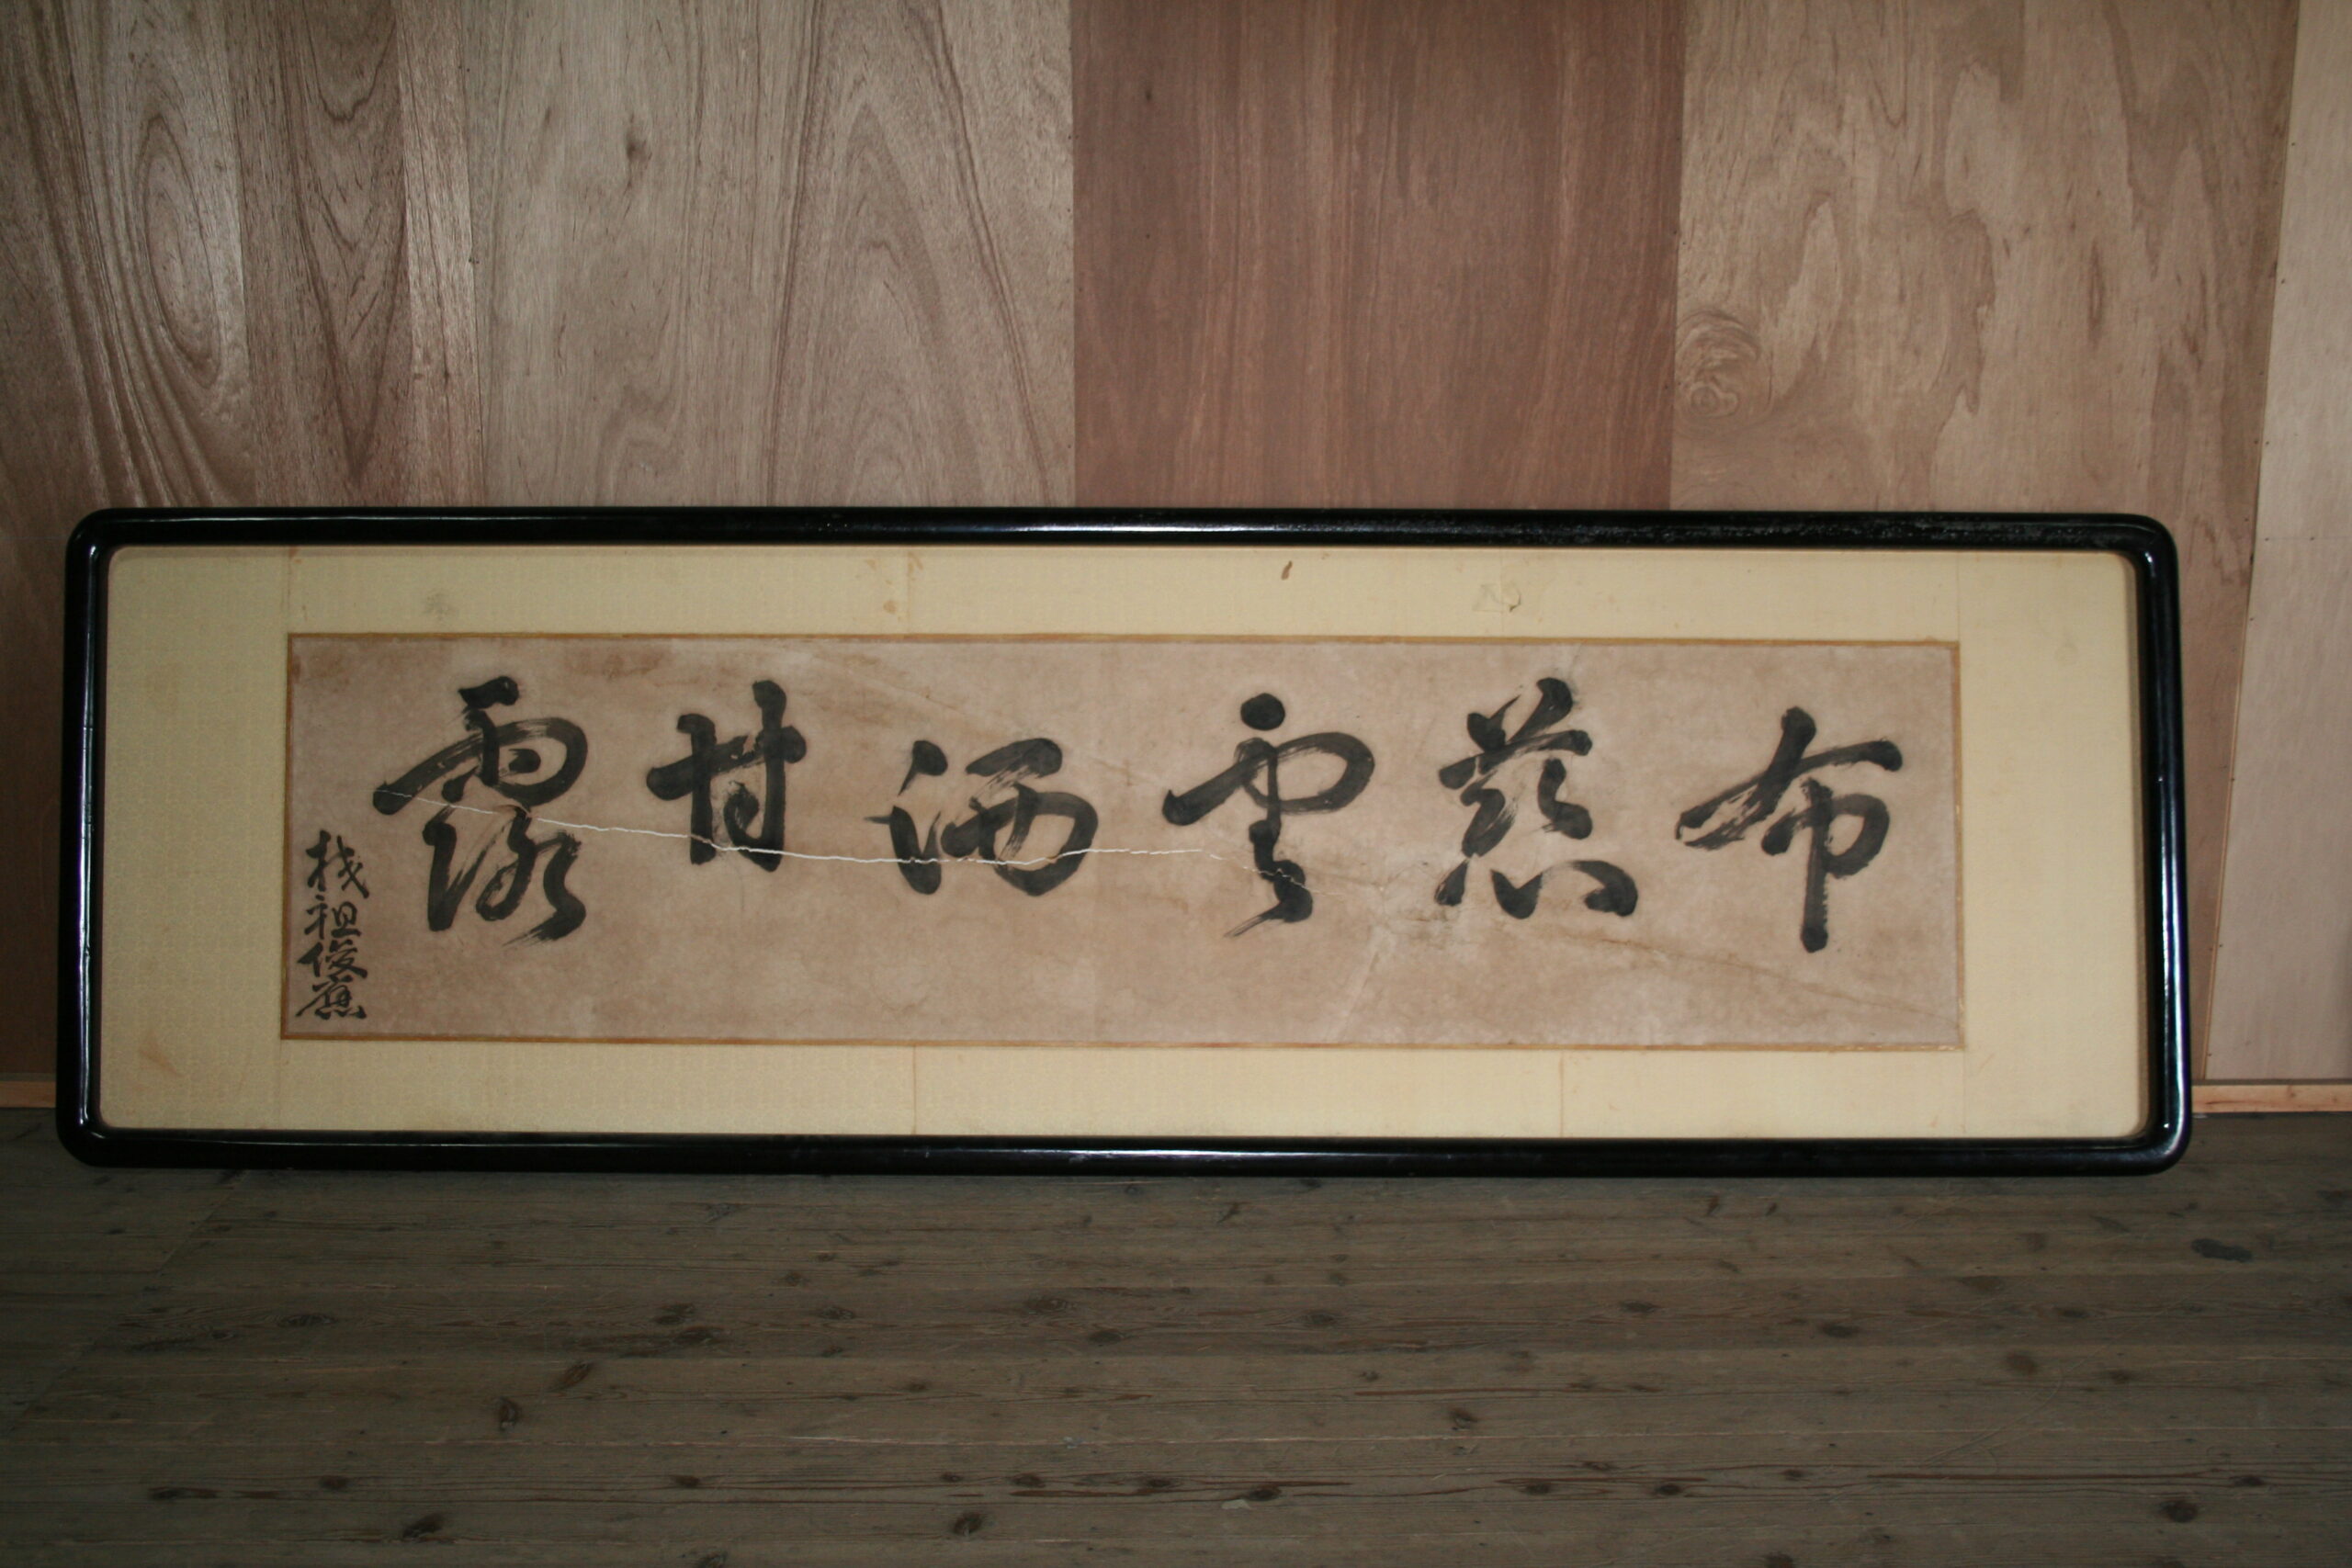 布慈雲洒甘露
祖俊